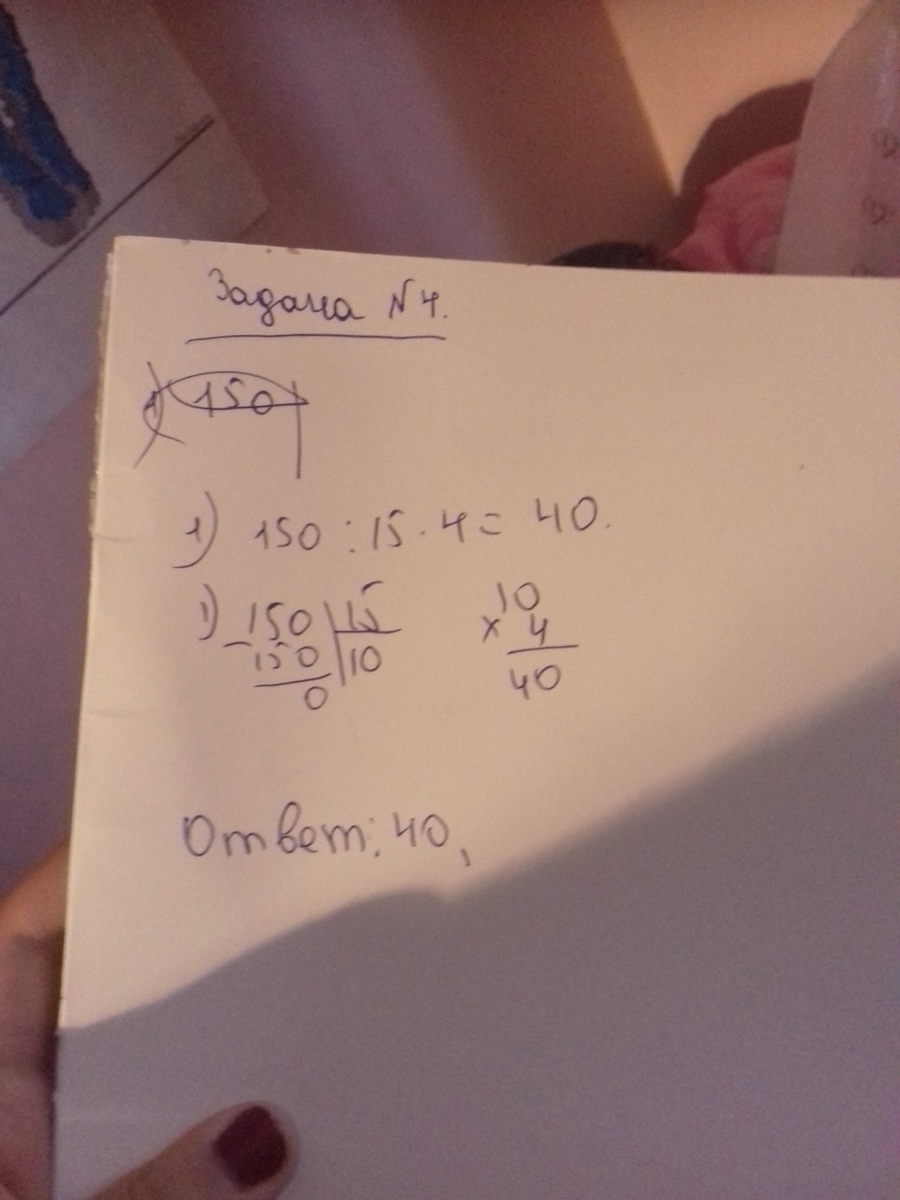 Задача N 4.
150
1) 150 : 15 · 4 = 40.
1) 150 | 15
− 150 | 10
0
10
× 4
40
Ответ: 40,